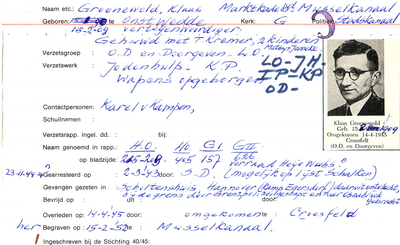 Naam etc: Groenewold, Klaas Marktkade 61, Musselkanaal
Geboren: 15-2-09 Onstwedde Kerk: G Politiek: Stadskanaal
15-2-09 vertegenwoordiger
Gehuwd met T. Kremer, 2 kinderen
Verzetsgroep : O.D. en Doorgeven. L.O.
Verzetswerk : Jodenhulp. K.P.
Wapens opgeborgen
LO-JH-
IP-KP
OD-
Contactpersonen: Karel v Kampen,
Schuilnamen :
Verzetsrapp. ingel. dd. : bij:
Naam genoemd in rapp.: H.O. Ho G1 GII
op bladzijde: 405 157 verraad
23-11-44 Gearresteerd op : 2-3-43 door: S.D. (mogelijk op lijst Schalken)
Gevangen gezeten in : Scholtenshuis, Hannover (Kamp Egersdorf)
Bevrijd op : uit : door:
Overleden op: 14-4-45 omgekomen Croesfeld
her Begraven op : 15-2-52 Musselkanaal.
Ingeschreven bij de Stichting 40/45:
Klaas Groenewold
Geb. 15
Omgekomen 14-4-1945
Croesfelt
(O.D. en Doorgeven)